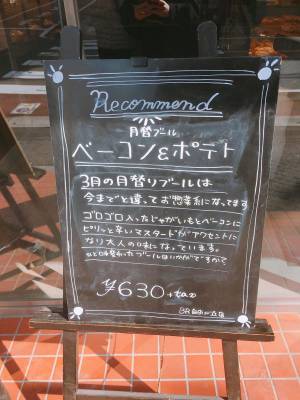 Recommend
月替ブール
ベーコン&ポテト
3月の月替りブールは
今までと違ってお惣菜系になってます
ゴロゴロ入ったじゃがいもとベーコンに
ピリッと辛いマスタードがアクセントに
なり大人の味になっています。
ひと味変わったブールはいかがですか?
¥630+tax